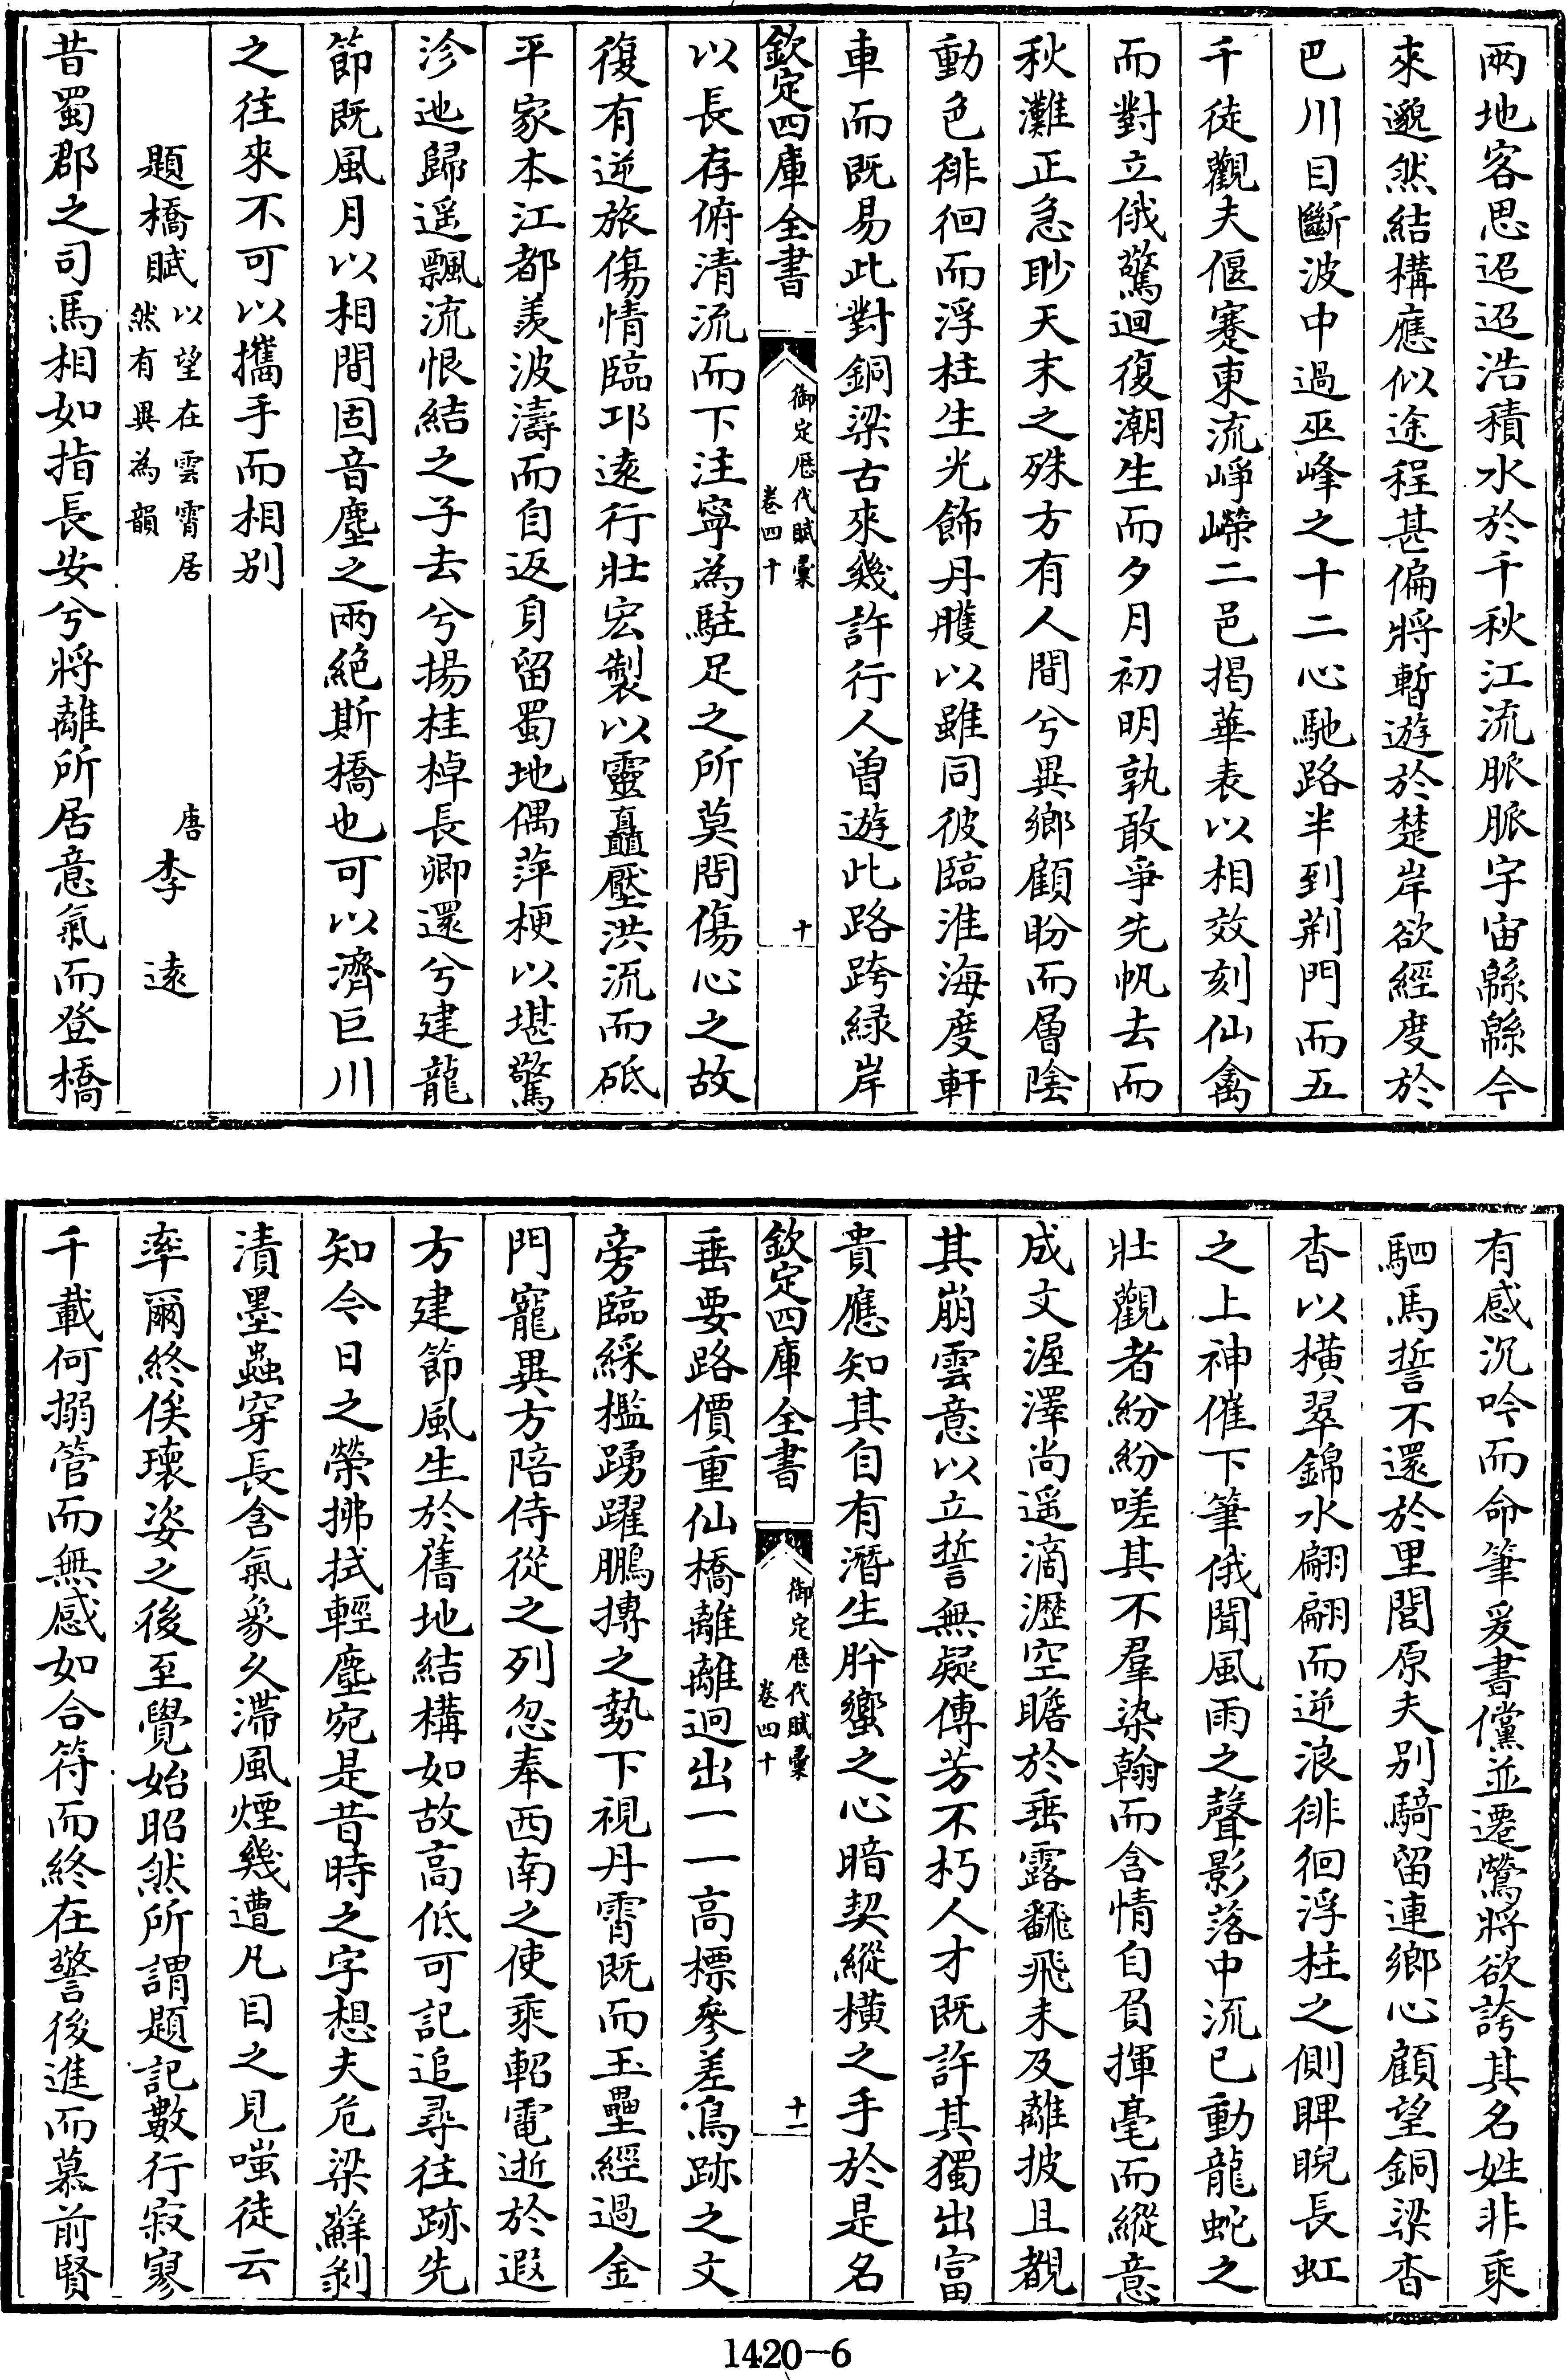 兩地客思迢迢浩積水於千秋江流脈脈宇宙緜緜今
來邈然結構應似途程甚偏將暫遊於楚岸欲經度於
巴川目斷波中過巫峰之十二心馳路半到荆門而五
千徒觀夫偃蹇東流崢嶸二邑揭華表以相效刻仙禽
而對立俄驚迴復潮生而夕月初明孰敢爭先帆去而
秋灘正急眇天末之殊方有人間兮異鄉顧盼而層陰
動色徘徊而浮柱生光飾丹雘以雖同彼臨淮海度軒
車而既易此對銅梁古來幾許行人曽遊此路跨緑岸
欽定四庫全書
御定歴代賦彙
卷四十
十
以長存俯清流而下注寧為駐足之所莫問傷心之故
復有逆旅傷情臨邛遠行壯宏製以靈矗壓洪流而砥
平家本江都羨波濤而自返身留蜀地偶萍梗以堪驚
沴迆歸遥飄流恨結之子去兮揚桂棹長卿還兮建龍
節既風月以相間固音塵之兩絶斯橋也可以濟巨川
之往來不可以攜手而相别
題橋賦
以望在雲霄居
然有異為韻
唐 李遠
昔蜀郡之司馬相如指長安兮將離所居意氣而登橋
有感沉吟而命筆爰書儻並遷鶯將欲誇其名姓非乘
駟馬誓不還於里閭原夫别騎留連鄉心顧望銅梁杳
杳以橫翠錦水翩翩而逆浪徘徊浮柱之側睥睨長虹
之上神催下筆俄聞風雨之聲影落中流已動龍蛇之
壯觀者紛紛嗟其不羣染翰而含情自負揮毫而縱意
成文渥澤尚遥滴瀝空瞻於垂露翻飛未及離披且覩
其崩雲意以立誓無疑傳芳不朽人才既許其獨出富
貴應知其自有潛生肸蠁之心暗契縱橫之手於是名
欽定四庫全書
御定歴代賦彙
卷四十
十一
垂要路價重仙橋離離迥出一一高標參差鳥跡之文
旁臨綵檻踴躍鵬摶之勢下視丹霄既而玉壘經過金
門寵異方陪侍從之列忽奉西南之使乘軺電逝於遐
方建節風生於舊地結構如故高低可記追尋往跡先
知今日之榮拂拭輕塵宛是昔時之字想夫危梁蘚剝
漬墨蟲穿長含氣象久滯風煙幾遭凡目之見嗤徒云
率爾終俟瓌姿之後至覺始昭然所謂題記數行寂寥
千載何搦管而無感如合符而終在警後進而慕前賢
1420-6